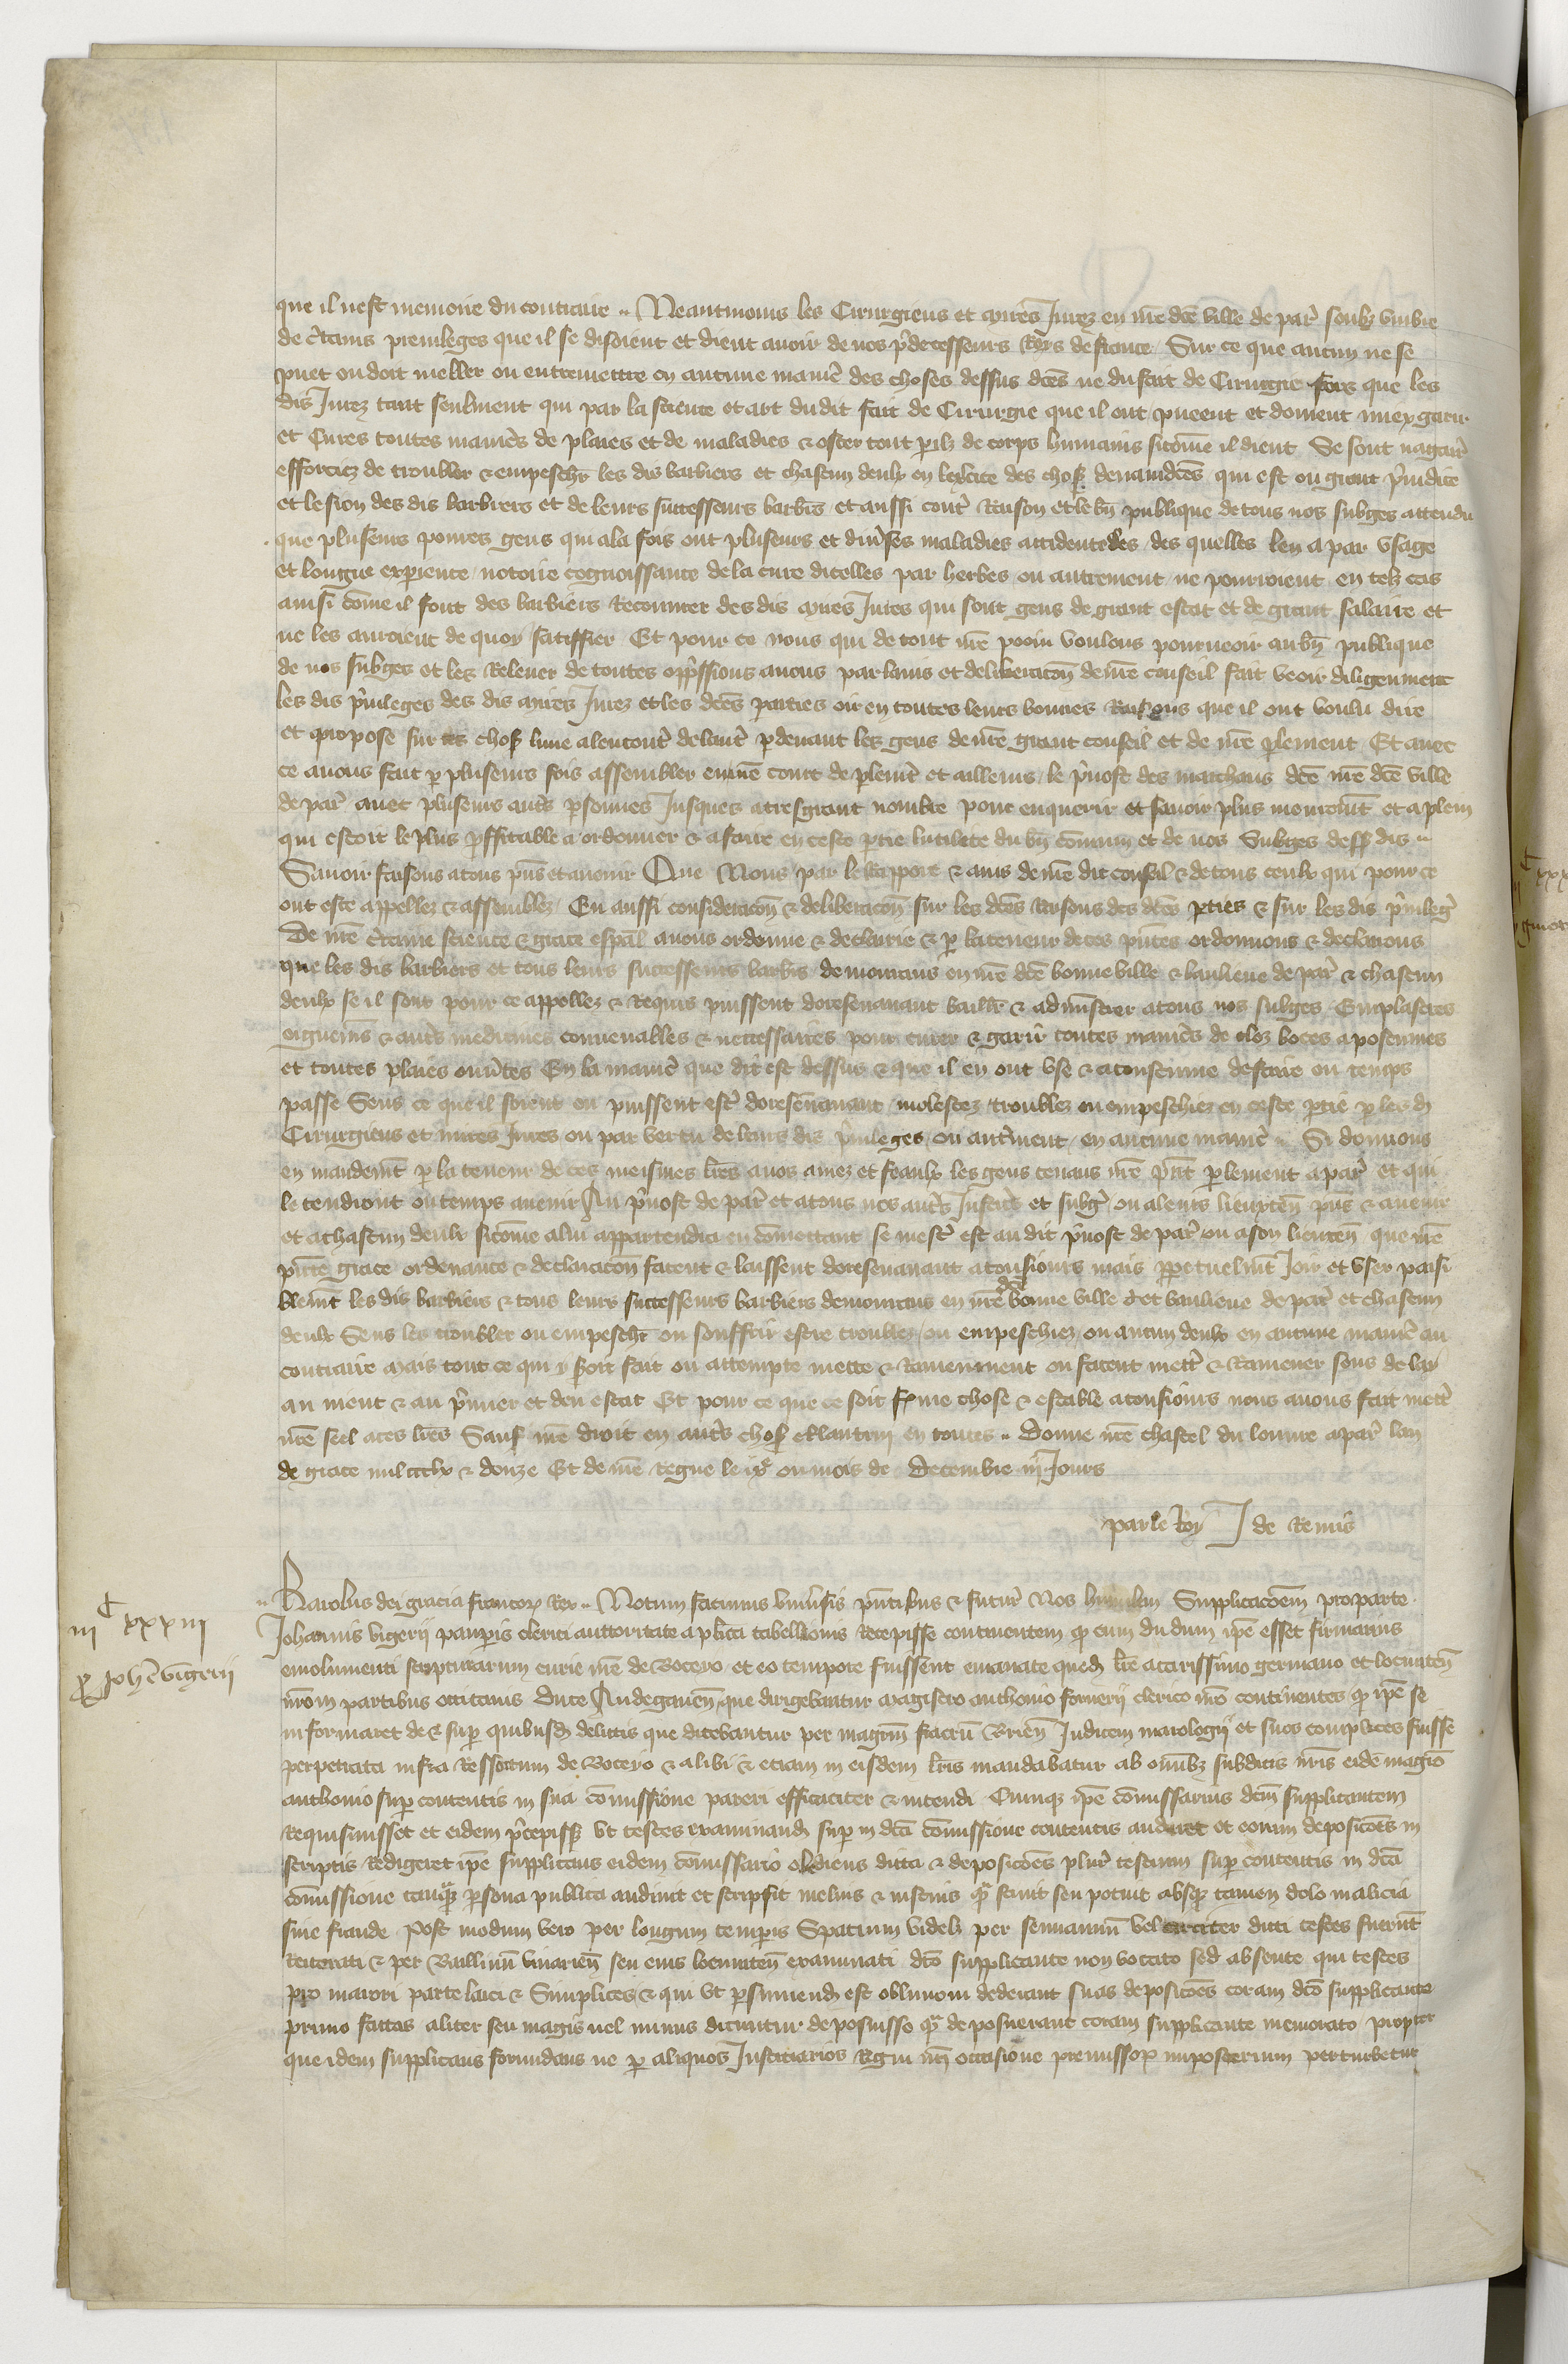 que il nest memoire du contraire .. Neantmoins les Cirurgiens et mires Jurez en nre dce ville de par soubz vmbre
de ctains preuileges que il se disoient et dient auoir de nos pdecesseurs Roys de france Sur ce que aucun ne se
puet ou doit meller ou entremettre en aucune manie des choses dessus dces ne du fait de Cirurgie fors que les
dis Jurez tant seulment qui par la science et art du dit fait de Cirurgie que il ont pueent et doiuent miex garir
et Curer toutes manies de plaies et de maladies & oster tout pilz de corps humains sicome il dient Se sont nagair
efforciez de troubler & empeschr les dis barbiers et chascun deulx en lexcite des chos deuantdces qui est ou grant piudice
et lesion des dis barbiers et de leurs successeurs barbrs et aussi cont Raison et le bn publique de tous nos subges attendu
que pluseurs poures gens qui ala fois ont pluseurs et diuses maladies accidenteles des quelles len a par vsage
et longue experience notoire cognoissance de la cure dicelles par herbes ou autrement ne pourroient en telz cas
ainsi come il font des barbiers Recouurer des dis mires Jures qui sont gens de grant estat et de grant salaire et
ne les auroient de quoy satiffier Et pour ce nous qui de tout nre pooir voulons pourueoir au bn publique
de nos subges et les Releuer de toutes oppssions auons par lauis et deliberacon de nre conseil fait veoir diligenment
les dis puileges des dis mires Jurez et les dces parties oir en toutes leurs bonnes Raisons que il ont voulu dire
et propose sur ces chos lune alencont de laut pdeuant les gens de nre grant conseil et de nre plement Et auec
ce auons fait p pluseurs fois assembler en nre court de plemt et ailleurs le puost des marchans dce nre dce ville
de par auec pluseurs auts psonnes Jusques a tresgrant nombre pour enquerir et sauoir plus meuremt et a plein
qui estoit le plus pffitable a ordonner & a faire en ceste ptie lutilete du bn comun et de nos Subges dess dis ..
Sauoir faisons atous pns et auenir Que Nous par le Rapport & auis de nre dit conseil & de tous ceulx qui pour ce
ont este appellez & assemblez Eu aussi consideracon & deliberacon sur les dces Raisons des dces pties & sur les dis puileg
De nre ctaine science & grace espal auons ordonne & declairie & p la teneur de ces pntes ordonnons & declarons
que les dis barbiers et tous leurs successeurs barbrs demourans en nre dce bonne ville & banlieue de par & chascun
deulx se il sont pour ce appellez & Requis puissent doresenauant baillr & administrer atous nos subges Emplastres
oiguemens & auts medicines conuenables & neccessaires pour curer & garir toutes manies de cloz boces apostumes
et toutes plaies ouutes En la manie que dit est dessus & que il en ont vse & acoustume de faire ou temps
passe Sens ce que il soient ou puissent est doresenauant molestez troublez ou empeschiez en ceste ptie p les d
Cirurgiens et mires Jures ou par vertu de leurs dis puileges ou autment en aucune manie .. Si donnons
en mandemt p la teneur de ces meismes lres a nos amez et feaulx les gens tenans nre pnt plement a par et qui
le tendront ou temps auenir Au puost de par et atous nos auts Justic et subg ou aleurs lieuxten pns & auenir
et achascun deulx sicome alui appartendra en comettant se mest est au dit puost de par ou ason lieuten que nre
pnte grace ordenance & declaracon facent & laissent doresenauant atousiours mais ppetuelmt Joir et vser paisi
blemt les dis barbiers & tous leurs successeurs barbiers demourans en nre dce bonne ville et banlieue de par et chascun
deulx Sens les troubler ou empeschr ou souffrir estre troublez ou empeschiez ou aucun deulx en aucune manie au
contraire Mais tout ce qui y seroit fait ou attempte mette & Ramenment ou facent mett & Ramener sens delay
au nient & au pmier et deu estat Et pour ce que ce soit ferme chose & estable atousiours nous auons fait mett
nre seel aces lres Sauf nre droit en auts chos et lautrui en toutes .. Donne nre chastel du louure a par lan
de grace mil ccclx & douze Et de nre regne le ix ou mois de Decembre iii Jours
par le Roy J de Remis
iii C xxxiii
p Johe vigerii
Karolus dei gracia francor Rex .. Notum facimus vniuersis pntibus & futur Nos humilem Supplicacoem pro parte
Johannis vigerij paupis clerici auctoritate aplica tabellionis Recepisse continentem q cum dudum ipe esset firmarius
emolumenti scripturarum curie nre de Boceyo et eo tempore fuissent emanate qued lre a carissimo germano et locumten
nrom partibus occitanis Duce Andegauen que dirigebantur magistro anthonio fornerij clerico nro continentes q ipe se
informaret de & sup quibusd delictis que dicebantur per magrm Brien Judicem maiologij et suos complices fuisse
perpetrata infra Ressortum de Boceyo & alibi & etiam in eisdem lris mandabatur ab omibz subditis nris eide magro
anthonio sup contentis in sua comissione pareri efficaciter & intendi Cumqz ipe comissarius dcm supplicantem
Requisiuisset et eidem pcepisset vt testes examinand sup in dca comissione contentis audiret et eorum deposicoes in
scriptis Redigeret ipe supplicans eidem comissario obediens dicta & deposicoes plur testium sup contentis in dca
comissione tanqz psona publica audiuit et scripsit melius & insertis q sciuit seu potuit absqz tamen dolo malicia
siue fraude Post modum vero per longum tempis Spatium videlz per semiannum vel circiter dicti testes fuerut
Reiterati & per Balliuu viuarien seu eius locumten examinati dco supplicante non vocato sed absente qui testes
pro maiori parte laici & Simplices & qui vt psumend est obliuioni dederant suas deposicoes coram dco supplicante
primo factas aliter seu magis uel minus dicuntur deposuisse q deposuerant coram supplicante memorato propter
que idem supplicans formidans ne p aliquos Justiciarios Regni nri occasione premissor imposterum perturbetur